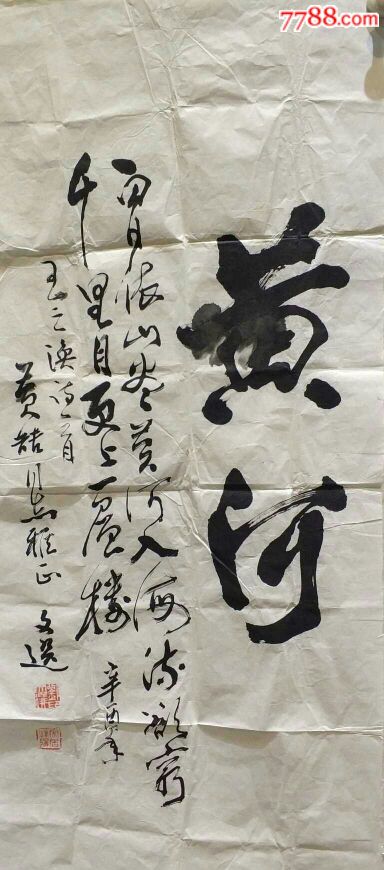 7788.com
黄河
白日依山尽黄河入海流欲穷
千里目更上一层楼 辛酉年
王之涣诗一首
黄喆同志雅正
文选